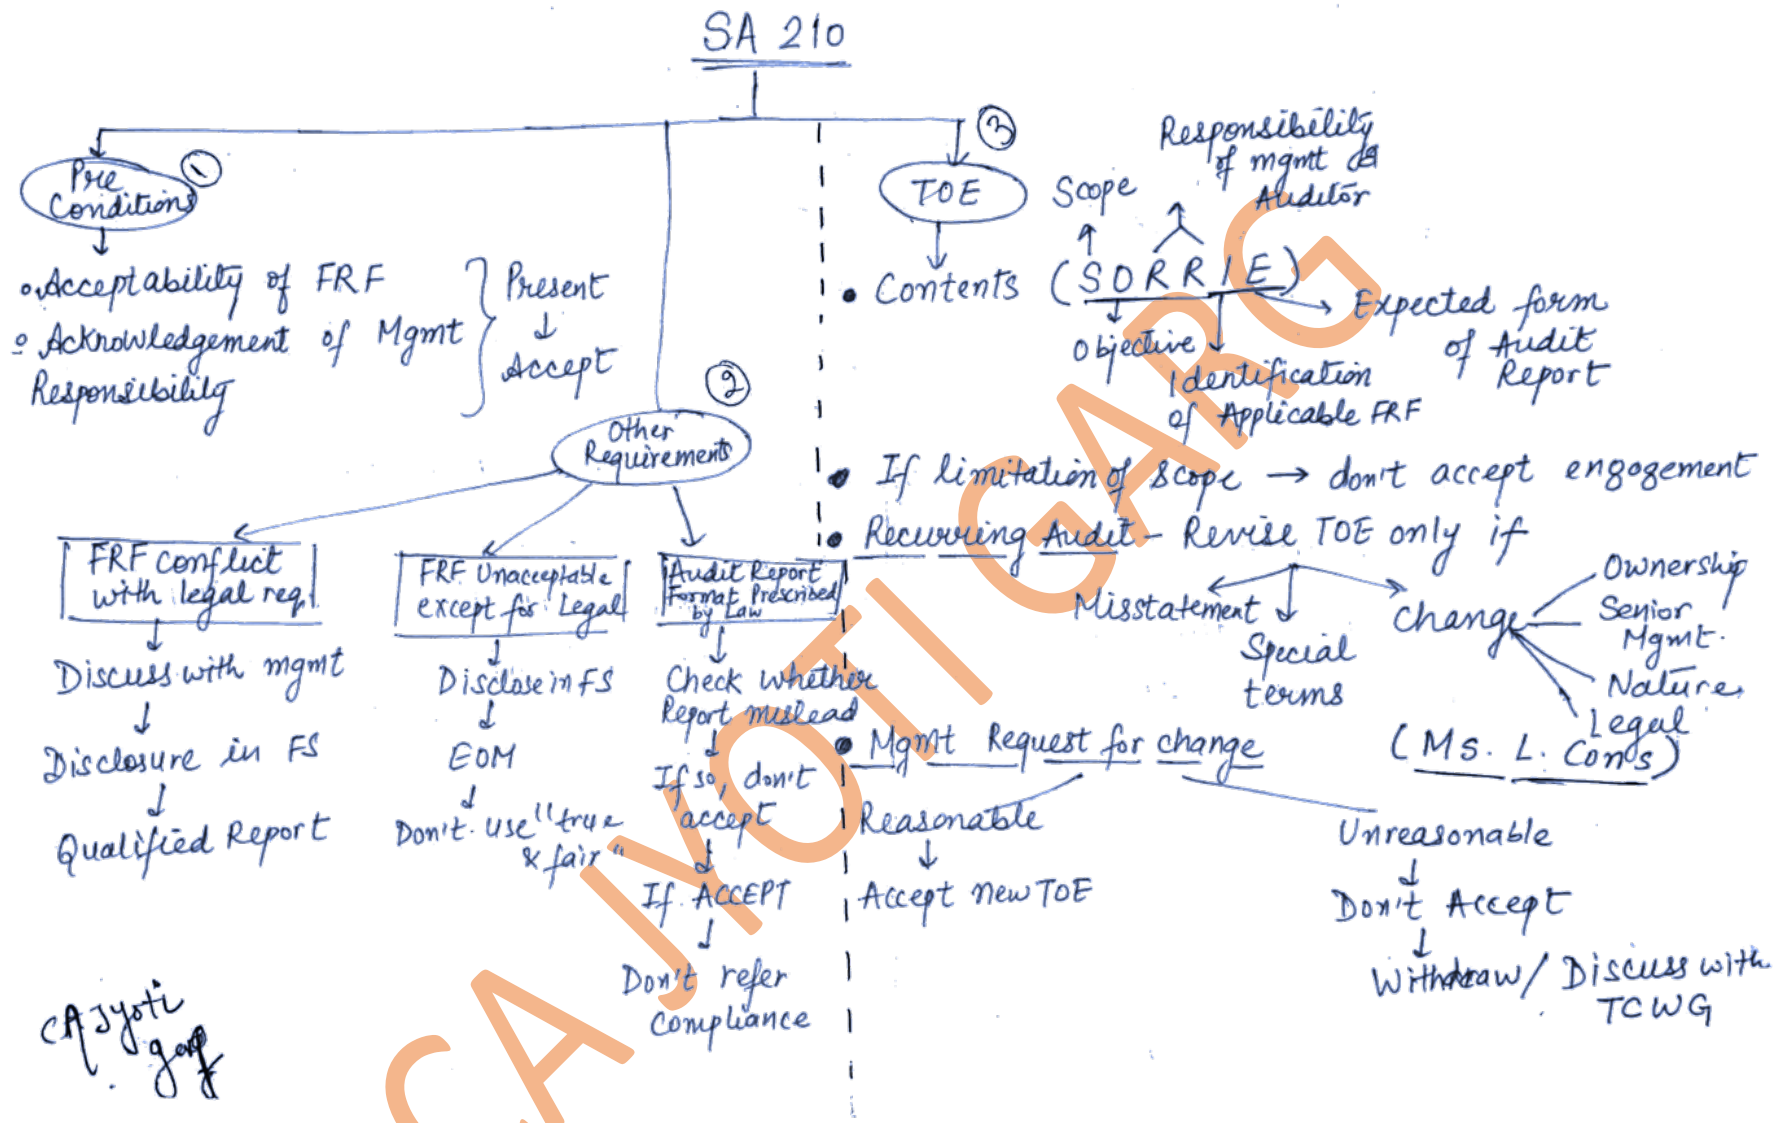 SA 210
①
Pre
Conditions
• Acceptability of FRF
• Acknowledgement of Mgmt
Responsibility
Present
↓
Accept
②
Other
Requirements
FRF conflict
with legal req.
Discuss with mgmt
↓
Disclosure in FS
↓
Qualified Report
FRF Unacceptable
except for Legal
Disclose in FS
↓
EOM
↓
Don't use "true
& fair"
Audit Report
Format Prescribed
by Law
Check whether
Report mislead
↓
If so, don't
accept
↓
If ACCEPT
↓
Don't refer
compliance
③
TOE
• Contents (SORRIE)
Scope
Responsibility
of mgmt &
Auditor
Objective
Identification
of Applicable FRF
Expected form
of Audit
Report
• If limitation of scope → don't accept engagement
• Recurring Audit - Revise TOE only if
Misstatement
Special
terms
Change
Ownership
Senior
Mgmt.
Nature
Legal
(Ms. L. Cons)
• Mgmt Request for change
Reasonable
↓
Accept new TOE
Unreasonable
↓
Don't Accept
↓
Withdraw / Discuss with
TCWG
CA Jyoti
garg
CA JYOTI GARG